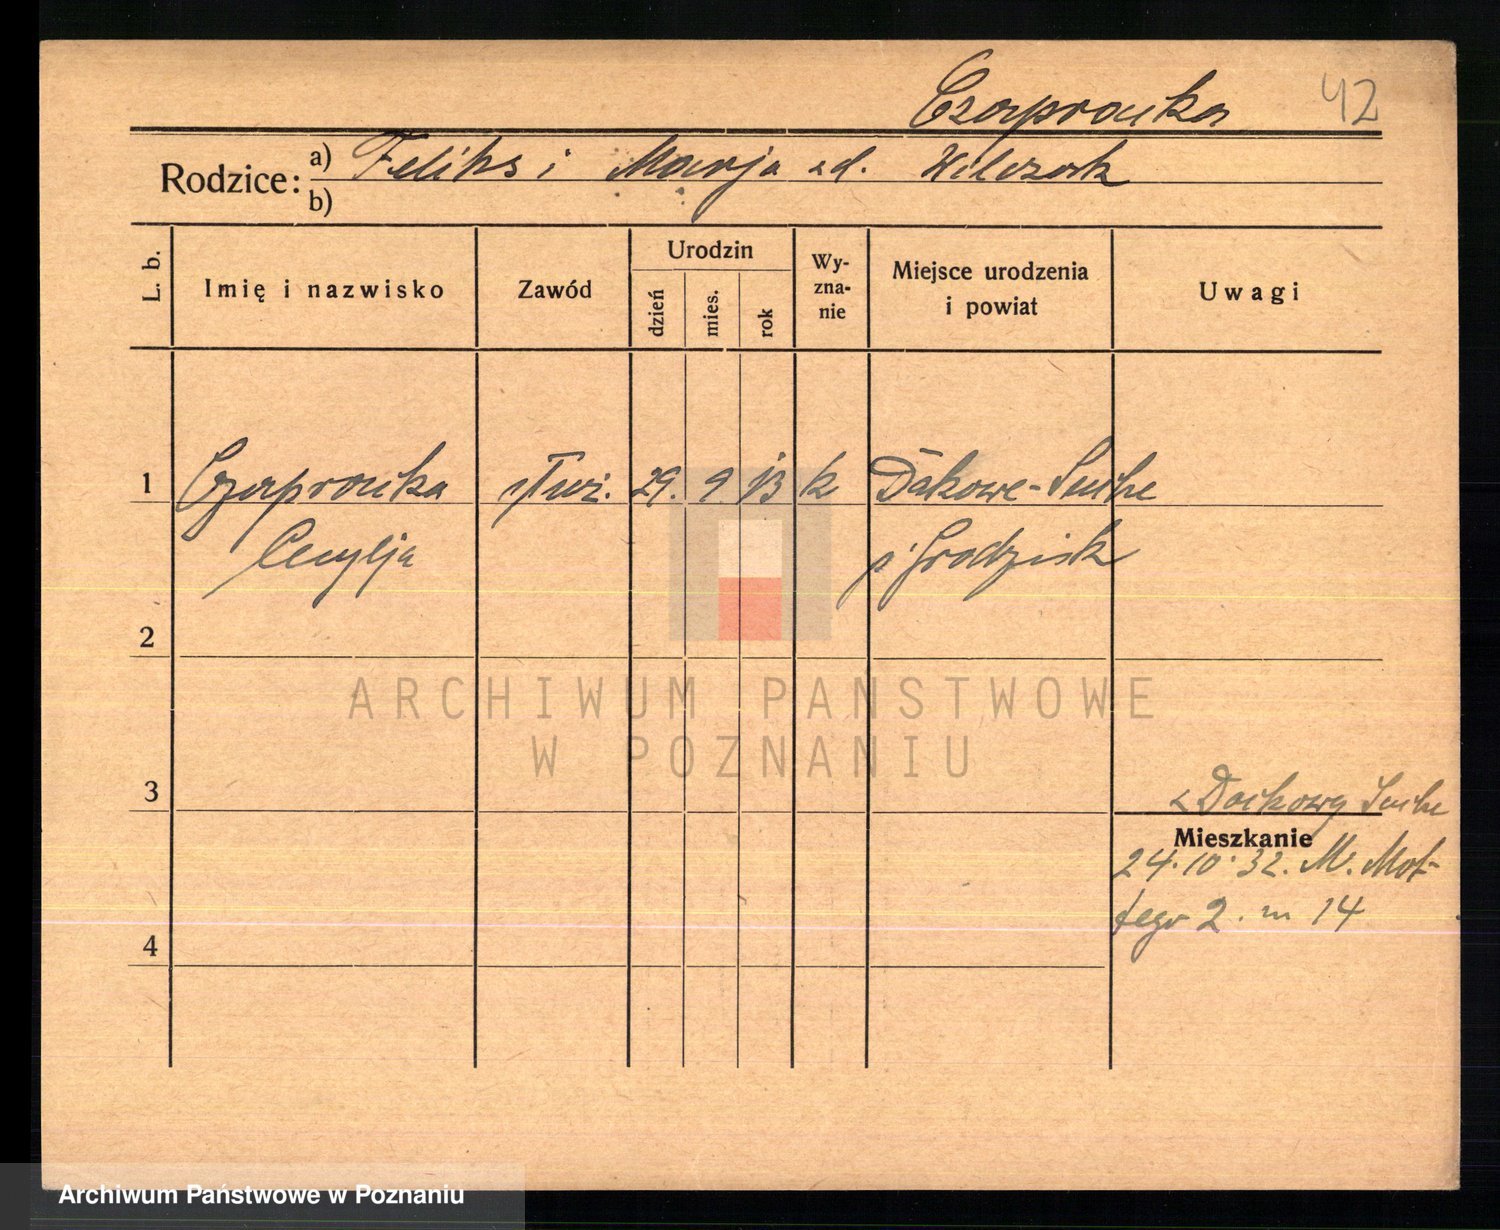 Czapronka 42
Rodzice: a) Feliks i Marja zd. Wilczak
b)
L. b. Imię i nazwisko Zawód Urodzin dzień mies. rok Wy-zna-nie Miejsce urodzenia i powiat Uwagi
1 Czapronka służ. 29. 9 13 k Dakowe-Suche
Cecylja p. Grodzisk
2
ARCHIWUM PAŃSTWOWE
W POZNANIU
3 z Dakowy Suche
Mieszkanie
24.10.32. M. Mot-
tego 2. m 14
4
Archiwum Państwowe w Poznaniu